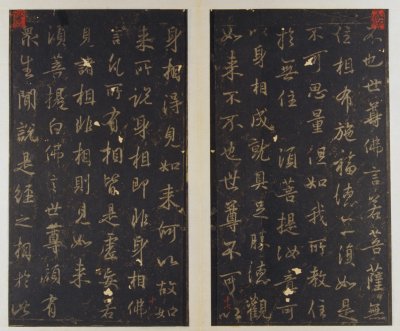 不也世尊佛言若菩薩無
住相布施福德亦復如是
不可思量但如我所教住
於無住須菩提汝意可
以身相成就具足勝德觀
如來不不也世尊不可以
身相得見如來何以故如
來所說身相即非身相佛
言凡所有相皆是虛妄若
見諸相非相則見如來
須菩提白佛言世尊頗有
眾生聞說是經之相於此